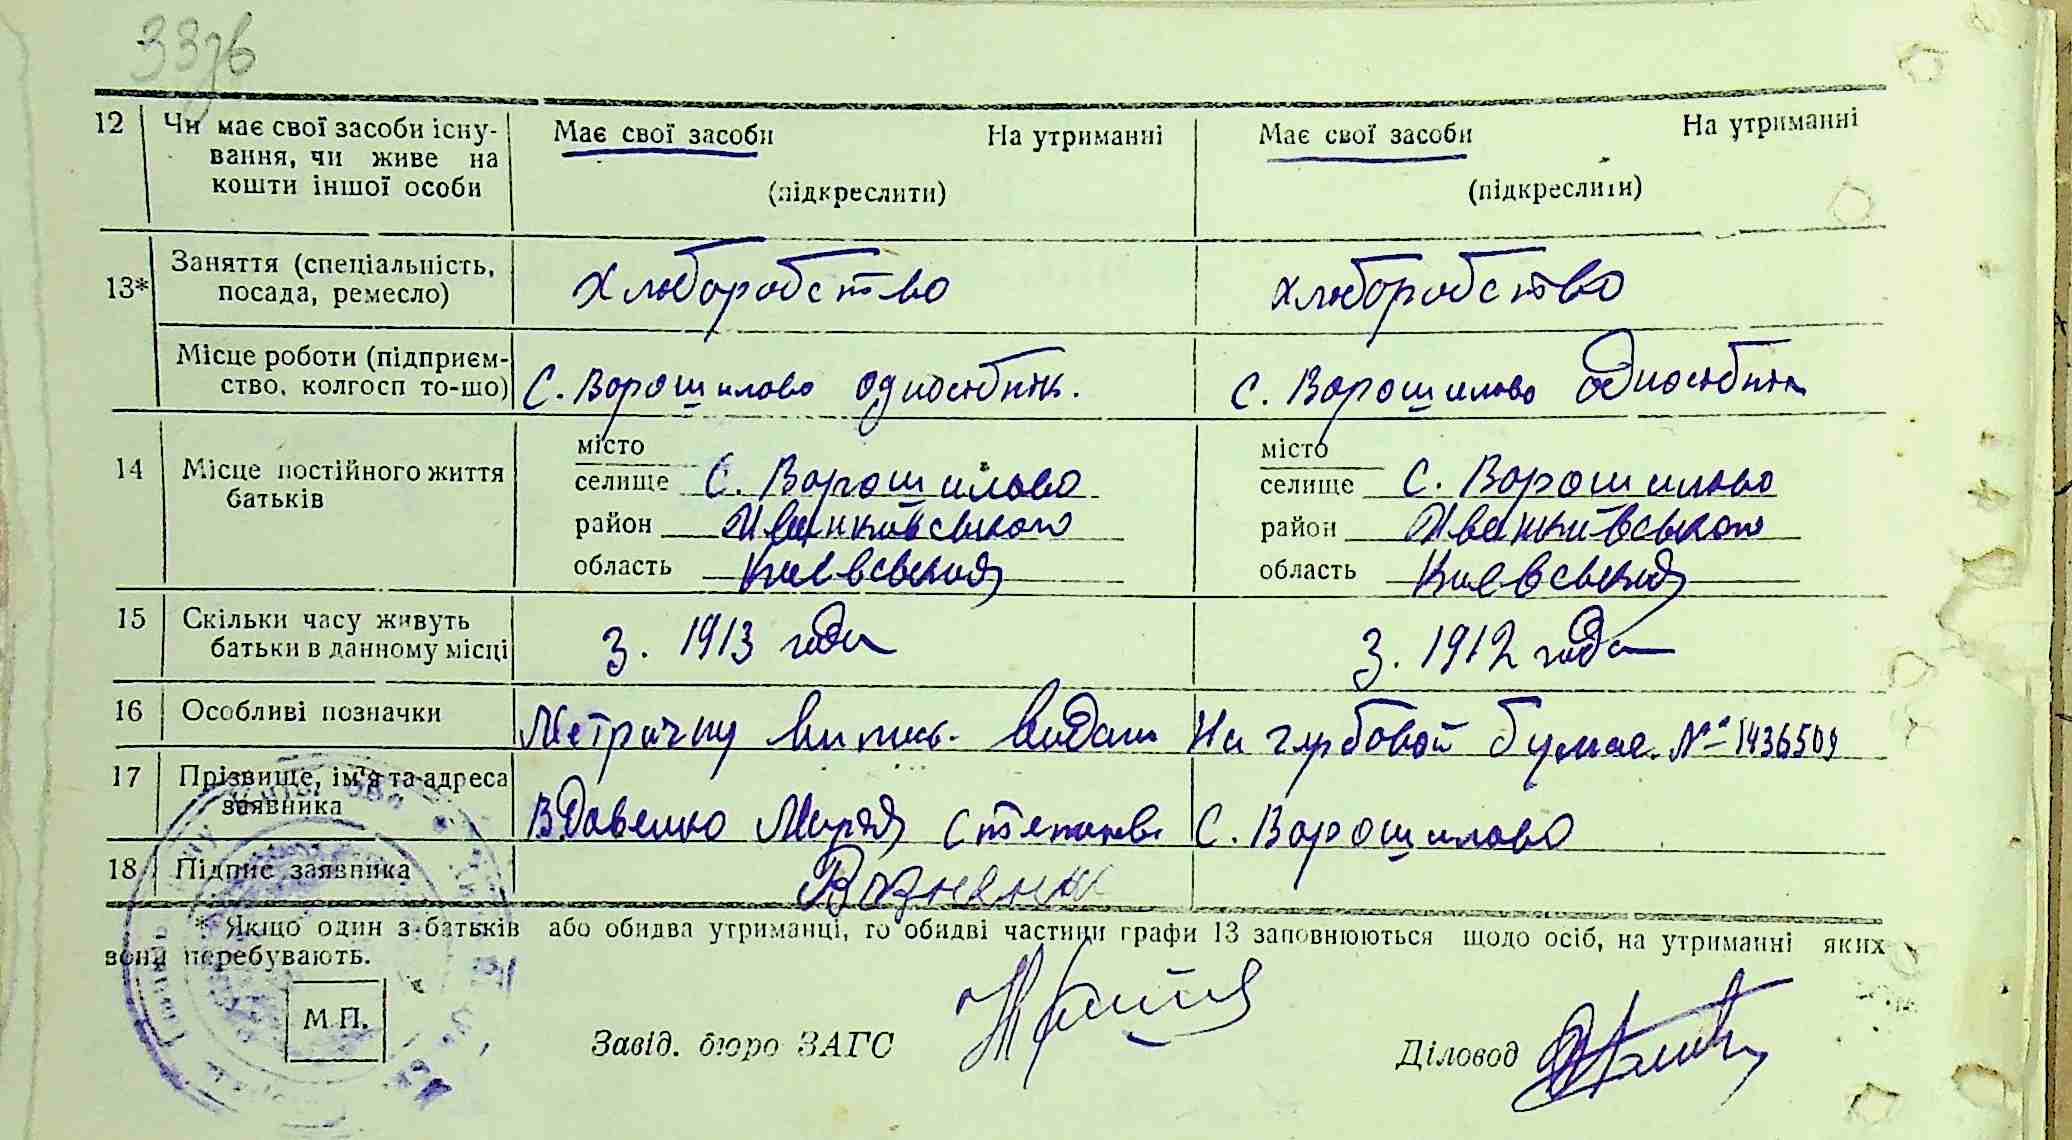 33зв
12 Чи має свої засоби існу- Має свої засоби На утриманні Має свої засоби На утриманні
вання, чи живе на
кошти іншої особи (підкреслити) (підкреслити)
13* Заняття (спеціальність, посада, ремесло) хлюборобство хлюборобство
Місце роботи (підприєм-
ство, колгосп то-що) С. Ворошилово односюбнік. С. Ворошилово односюбнік
14 Місце постійного життя батьків місто місто
селище С. Ворошилово селище С. Ворошилово
район Иванківського район Иванківського
область Киевської область Киевської
15 Скільки часу живуть
батьки в данному місці З. 1913 года З. 1912 года
16 Особливі позначки Метричну випись. видаш На гербовой бумае. № 1436509
17 Прізвище, ім'я та адреса
заявника Вдовенко Мария С. Ворошилово
18 Підпис заявника
* Якщо один з батьків або обидва утриманці, то обидві частини графи 13 заповнюються щодо осіб, на утриманні яких
вони перебувають.
М.П.
Завід. бюро ЗАГС
Діловод